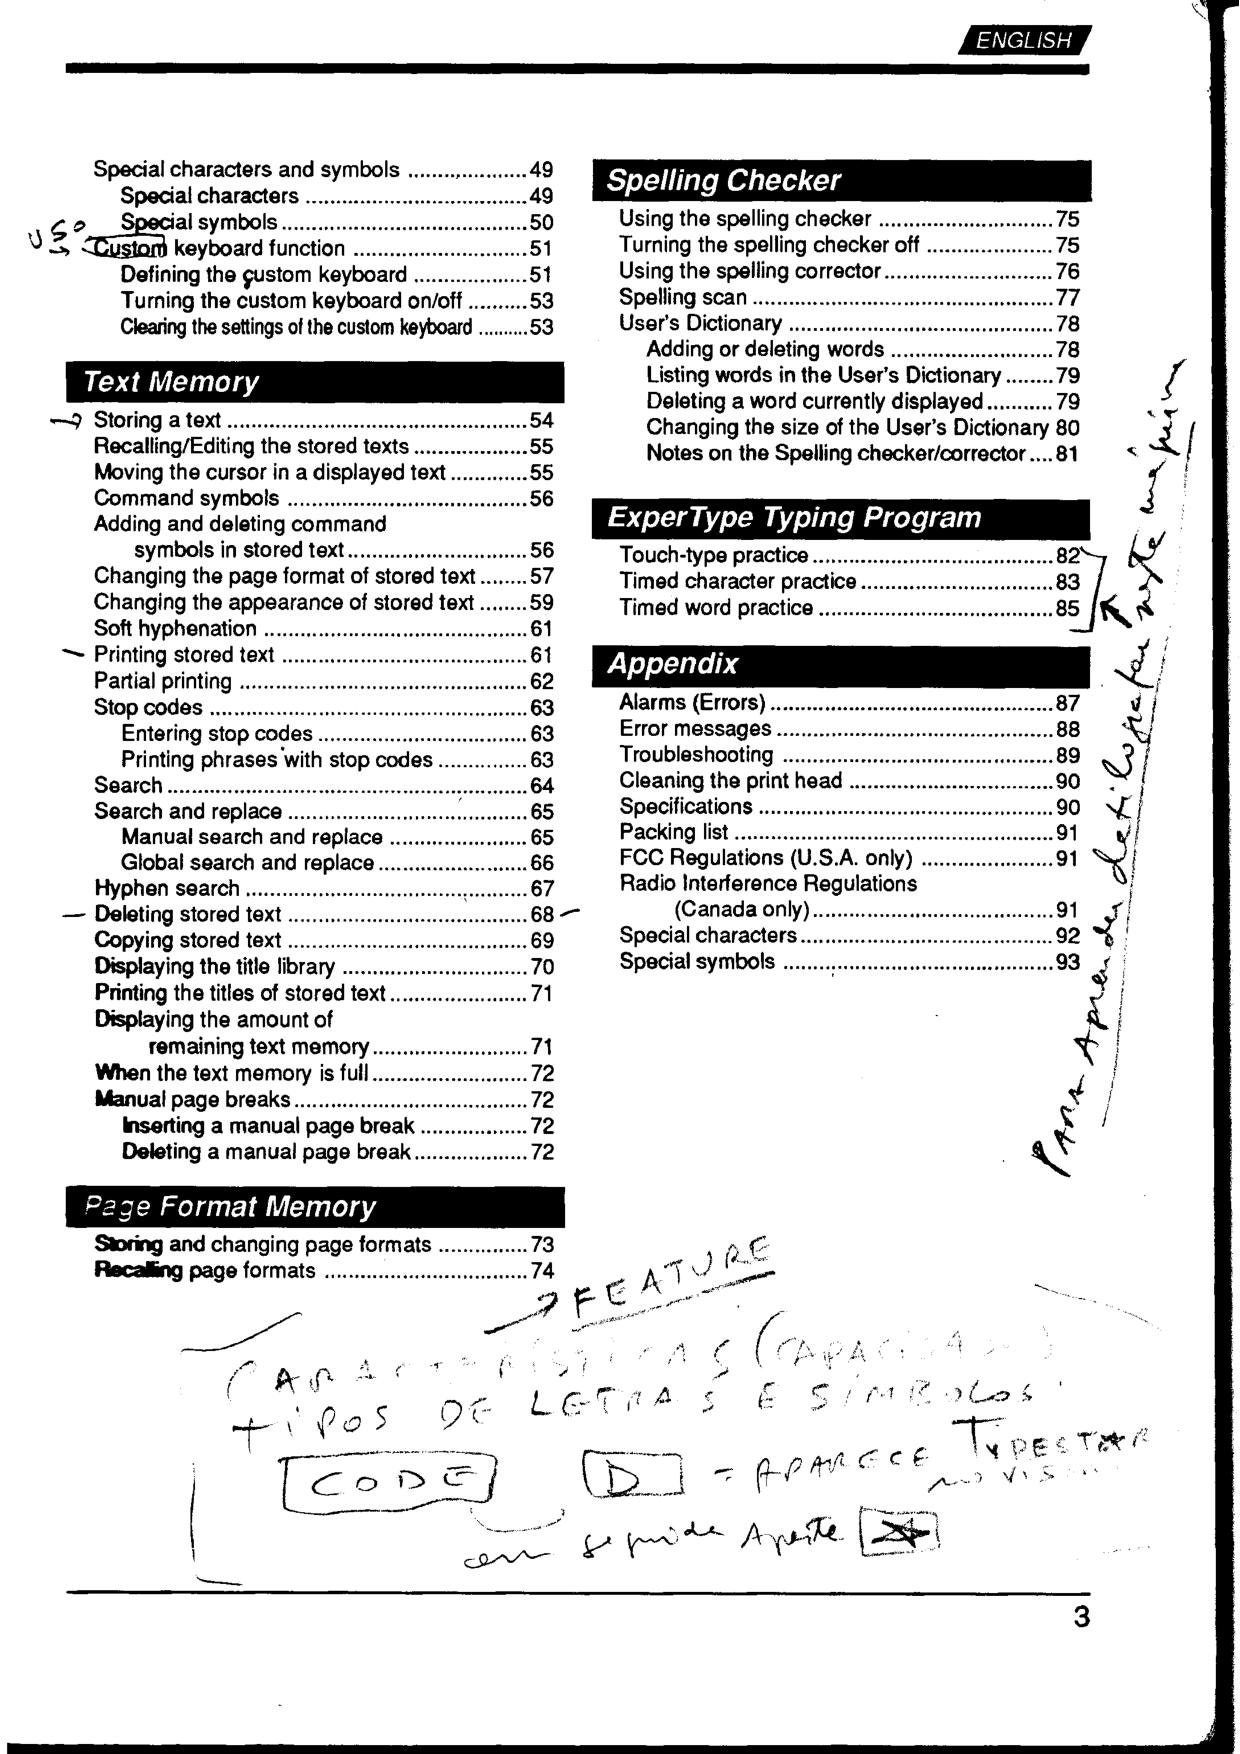 ENGLISH
Special characters and symbols ....................49
Special characters .....................................49
Special symbols.........................................50
USO
Custom keyboard function .............................51
Defining the custom keyboard ...................51
Turning the custom keyboard on/off ..........53
Clearing the settings of the custom keyboard ..........53
Text Memory
Storing a text ..................................................54
Recalling/Editing the stored texts ...................55
Moving the cursor in a displayed text .............55
Command symbols ........................................56
Adding and deleting command
symbols in stored text..............................56
Changing the page format of stored text ........57
Changing the appearance of stored text ........59
Soft hyphenation ............................................61
Printing stored text .........................................61
Partial printing ................................................62
Stop codes .....................................................63
Entering stop codes ...................................63
Printing phrases with stop codes ...............63
Search ............................................................64
Search and replace ........................................65
Manual search and replace .......................65
Global search and replace.........................66
Hyphen search ...............................................67
Deleting stored text ........................................68
Copying stored text ........................................69
Displaying the title library ...............................70
Printing the titles of stored text.......................71
Displaying the amount of
remaining text memory..........................71
When the text memory is full..........................72
Manual page breaks.......................................72
Inserting a manual page break ..................72
Deleting a manual page break...................72
Page Format Memory
Storing and changing page formats ...............73
Recalling page formats ..................................74
Spelling Checker
Using the spelling checker .............................75
Turning the spelling checker off .....................75
Using the spelling corrector............................76
Spelling scan ..................................................77
User's Dictionary ............................................78
Adding or deleting words ...........................78
Listing words in the User's Dictionary ........79
Deleting a word currently displayed...........79
Changing the size of the User's Dictionary 80
Notes on the Spelling checker/corrector ....81
ExperType Typing Program
Touch-type practice ........................................82
Timed character practice ................................83
Timed word practice .......................................85
Appendix
Alarms (Errors) ...............................................87
Error messages ..............................................88
Troubleshooting .............................................89
Cleaning the print head ..................................90
Specifications .................................................90
Packing list .....................................................91
FCC Regulations (U.S.A. only) ......................91
Radio Interference Regulations
(Canada only)........................................91
Special characters..........................................92
Special symbols .............................................93
PARA Aprender datilografar neste máquina
→ FEATURE
CARACTERÍSTICAS (CAPACIDA
TIPOS DE LETRAS E SÍMBOLOS
CODE D = APARECE TYPESTAR
NO VIS
em seguida Aperte
3